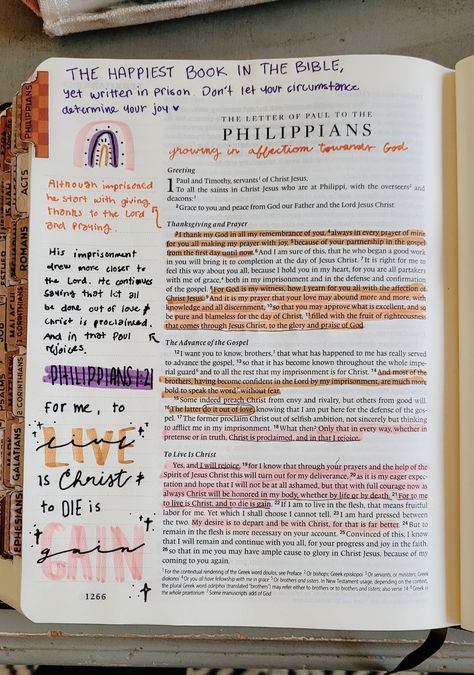 THE HAPPIEST BOOK IN THE BIBLE,
yet written in prison. Don't let your circumstance
determine your joy ♥
THE LETTER OF PAUL TO THE
PHILIPPIANS
growing in affection towards God
Although imprisoned
he start with giving
thanks to the Lord
and praying.
His imprisonment
drew more closer to
the Lord. He continues
saying that let all
be done out of love &
Christ is proclaimed.
And in that Paul
rejoices.
PHILIPPIANS 1:21
For me, to
LIVE
live
is Christ
to DIE is
GAIN
gain
1266
Greeting
1 Paul and Timothy, servants¹ of Christ Jesus,
To all the saints in Christ Jesus who are at Philippi, with the overseers² and
deacons:³
2 Grace to you and peace from God our Father and the Lord Jesus Christ.
Thanksgiving and Prayer
3 I thank my God in all my remembrance of you, 4 always in every prayer of mine
for you all making my prayer with joy, 5 because of your partnership in the gospel
from the first day until now. 6 And I am sure of this, that he who began a good work
in you will bring it to completion at the day of Jesus Christ. 7 It is right for me to
feel this way about you all, because I hold you in my heart, for you are all partakers
with me of grace,⁴ both in my imprisonment and in the defense and confirmation
of the gospel. 8 For God is my witness, how I yearn for you all with the affection of
Christ Jesus. 9 And it is my prayer that your love may abound more and more, with
knowledge and all discernment, 10 so that you may approve what is excellent, and so
be pure and blameless for the day of Christ, 11 filled with the fruit of righteousness
that comes through Jesus Christ, to the glory and praise of God.
The Advance of the Gospel
12 I want you to know, brothers,⁵ that what has happened to me has really served
to advance the gospel, 13 so that it has become known throughout the whole imperial
guard⁶ and to all the rest that my imprisonment is for Christ. 14 And most of the
brothers, having become confident in the Lord by my imprisonment, are much more
bold to speak the word⁷ without fear.
15 Some indeed preach Christ from envy and rivalry, but others from good will.
16 The latter do it out of love, knowing that I am put here for the defense of the gospel.
17 The former proclaim Christ out of selfish ambition, not sincerely but thinking
to afflict me in my imprisonment. 18 What then? Only that in every way, whether in
pretense or in truth, Christ is proclaimed, and in that I rejoice.
To Live Is Christ
Yes, and I will rejoice, 19 for I know that through your prayers and the help of the
Spirit of Jesus Christ this will turn out for my deliverance, 20 as it is my eager expectation
and hope that I will not be at all ashamed, but that with full courage now as
always Christ will be honored in my body, whether by life or by death. 21 For to me
to live is Christ, and to die is gain. 22 If I am to live in the flesh, that means fruitful
labor for me. Yet which I shall choose I cannot tell. 23 I am hard pressed between
the two. My desire is to depart and be with Christ, for that is far better. 24 But to
remain in the flesh is more necessary on your account. 25 Convinced of this, I know
that I will remain and continue with you all, for your progress and joy in the faith,
26 so that in me you may have ample cause to glory in Christ Jesus, because of my
coming to you again.
PHILIPPIANS
ACTS
ROMANS
1 CORINTHIANS
2 CORINTHIANS
GALATIANS
EPHESIANS